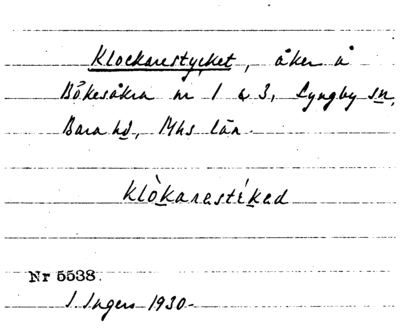 Klockarestycket, åker å
Bökesåkra nr 1 & 3, Lyngby sn,
Bara hd, Mhs län.
klò̱karestí̱ked
Nr 5538.
I. Ingers 1930.